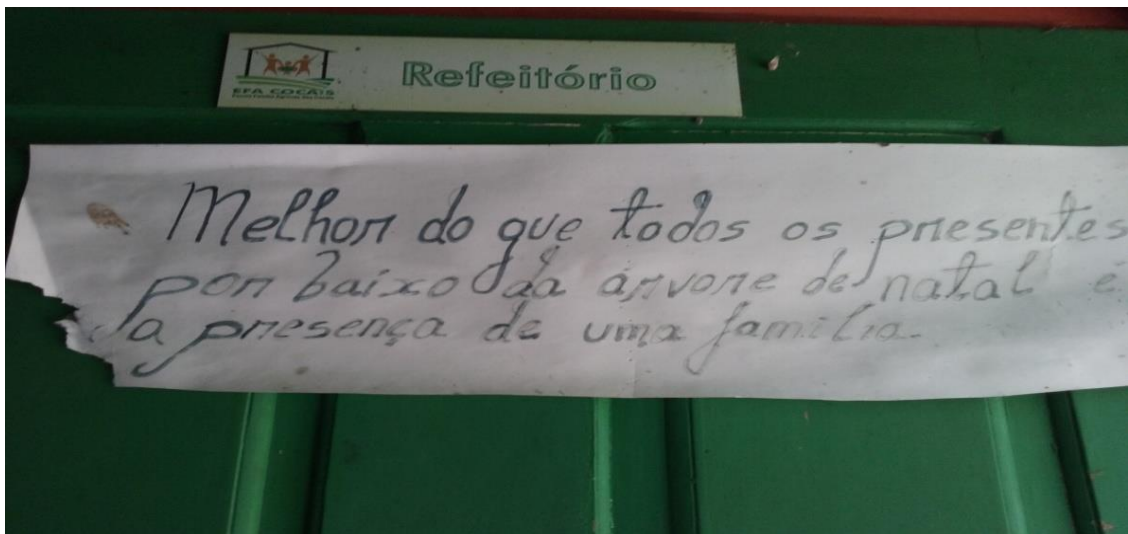 Refeitório
EFA COCAIS
Melhor do que todos os presentes
por baixo da árvore de natal é
a presença de uma família.